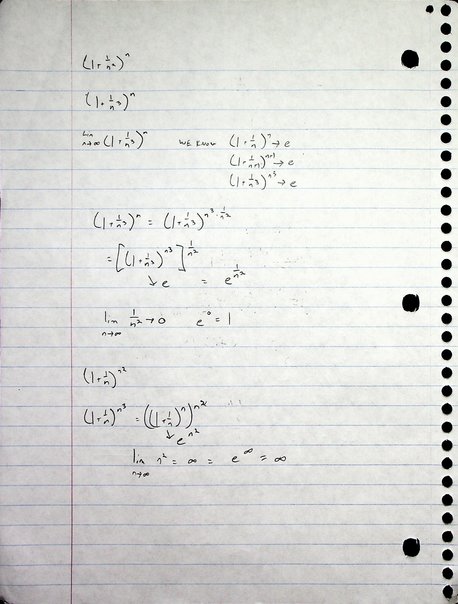 (1+1/n²)ⁿ
(1+1/n³)ⁿ
lim n→∞ (1+1/n³)ⁿ WE KNOW (1+1/n)ⁿ → e
(1+1/(n+1))ⁿ⁺¹ → e
(1+1/n³)^(n³) → e
(1+1/n³)ⁿ = (1+1/n³)^(n³·1/n²)
= [(1+1/n³)^(n³)]^(1/n²)
↓ e = e^(1/n²)
lim n→∞ 1/n² → 0 e⁰ = 1
(1+1/n)^(n²)
(1+1/n)^(n³) = ((1+1/n)ⁿ)^(n²)
↓ e^(n²)
lim n→∞ n² = ∞ = e^∞ = ∞